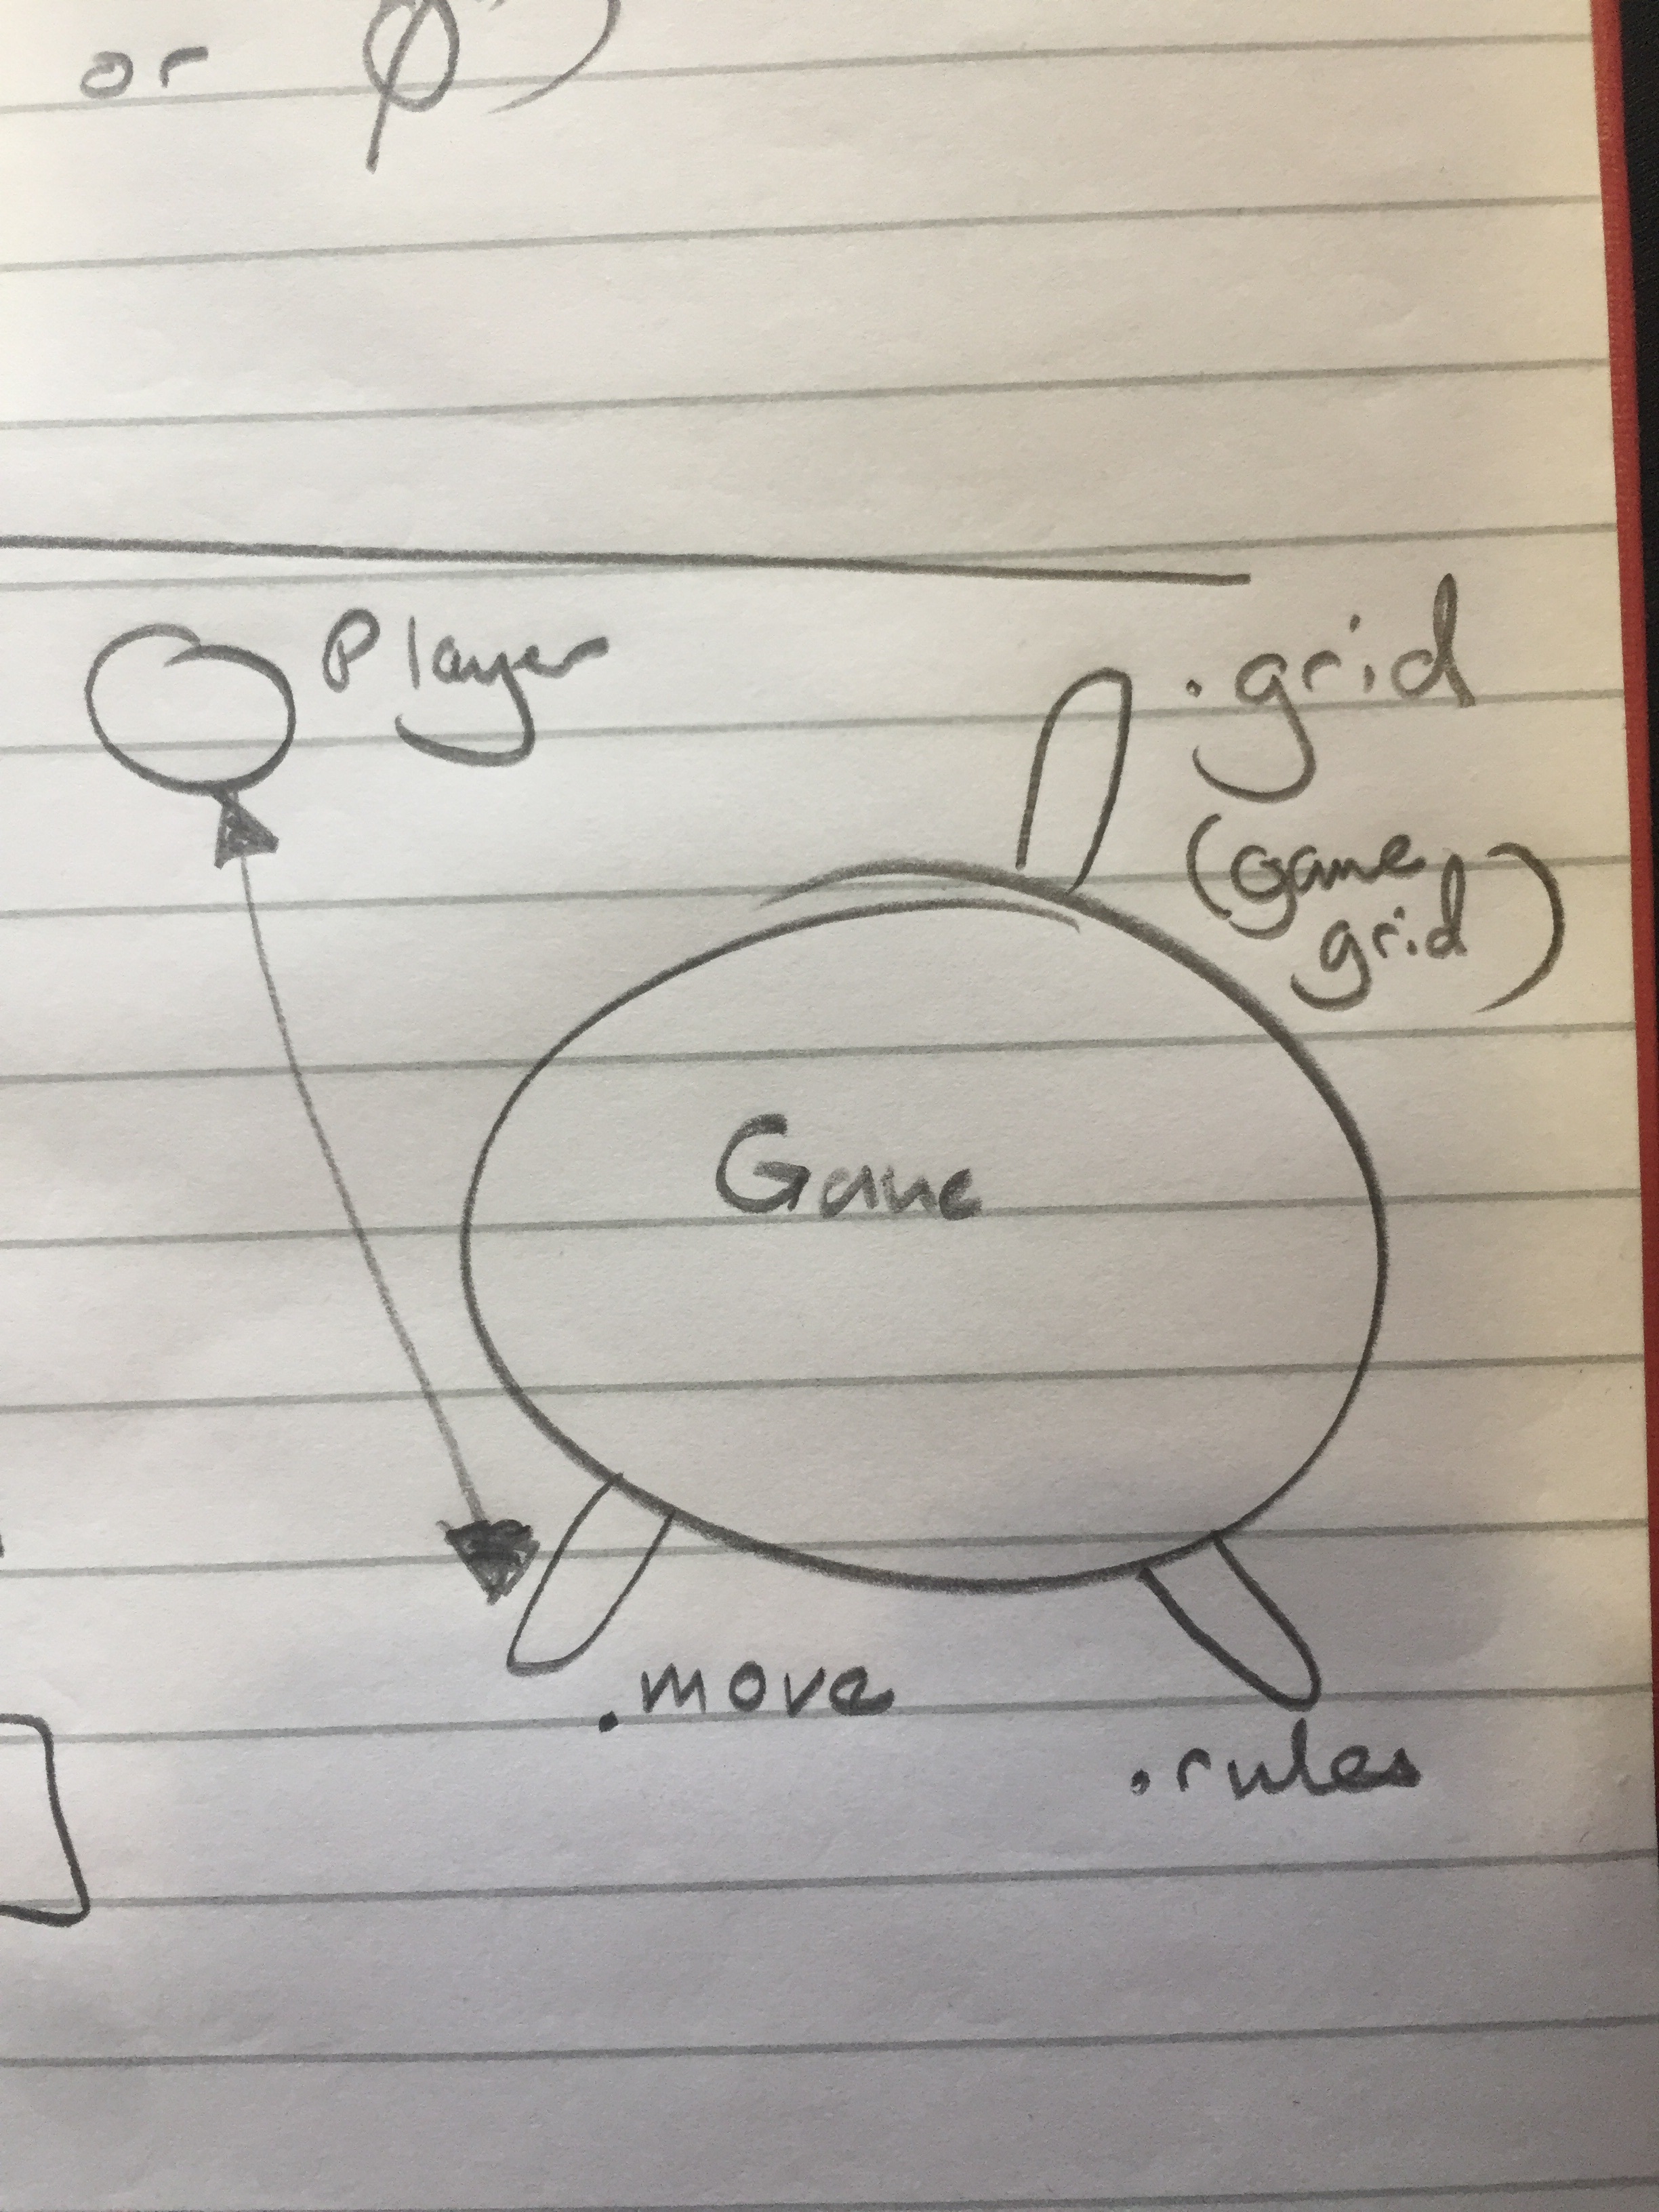 or Ø")
Player
.grid
(game
grid)
Game
.move
.rules